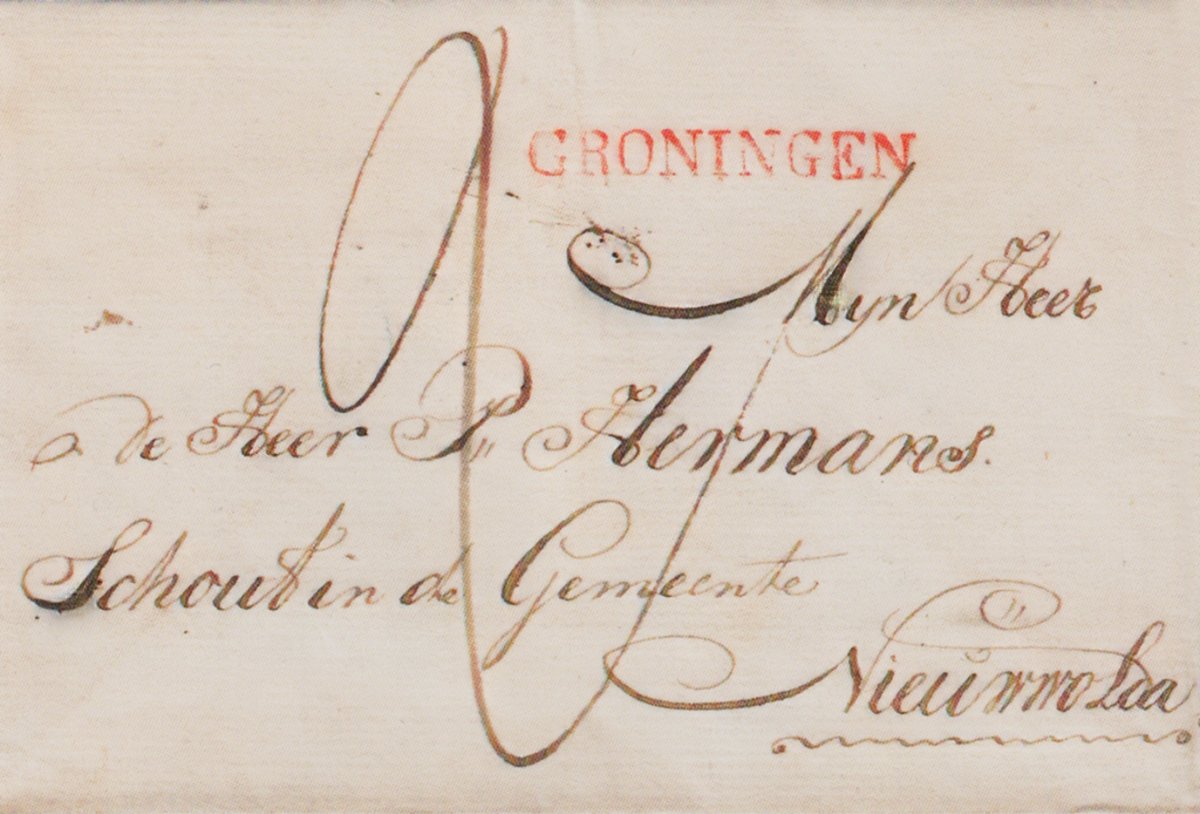 GRONINGEN
Mijn Heer
de Heer P Hermans.
Schout in de Gemeente
Nieuwwolda